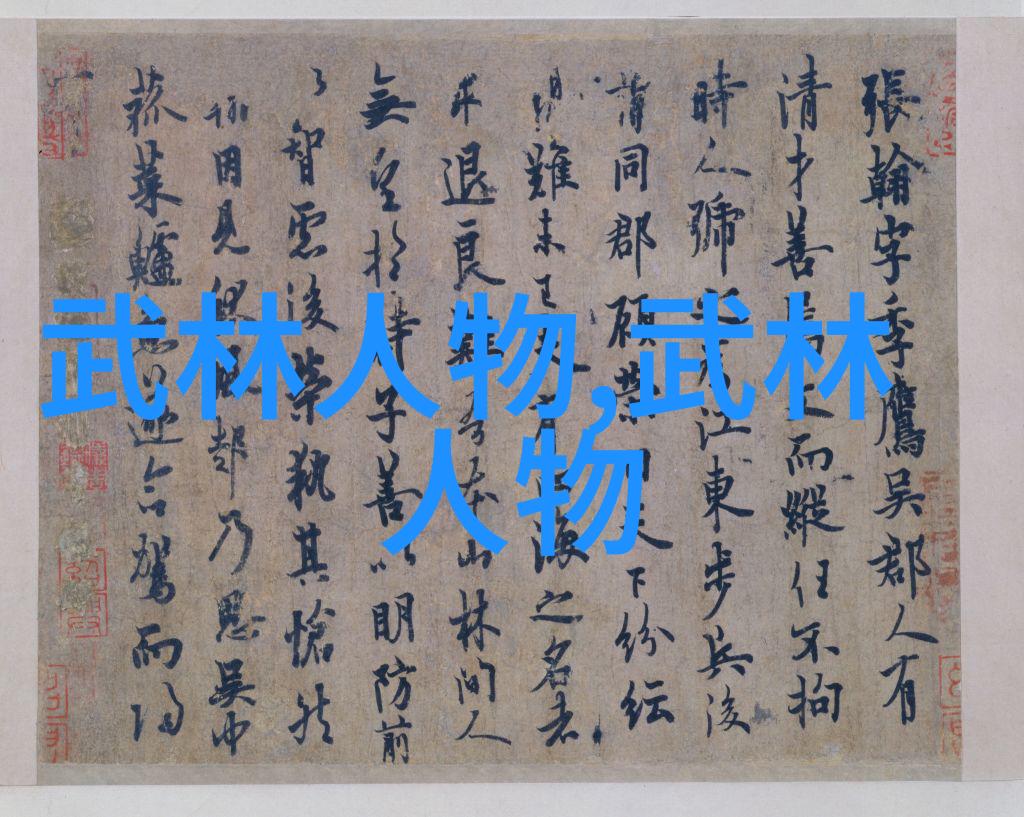 武林人物,武林
人物
張翰字季鷹吳郡人有
清才善文而縱任不拘
時人號江東步兵後
同郡顧榮天下紛紜
難未有海之名者
求退良難吾本山林間人
無望於時子善以明防前
智慮後榮執其愴然
因見風起乃思吳中
菰菜鱸遂命駕而歸